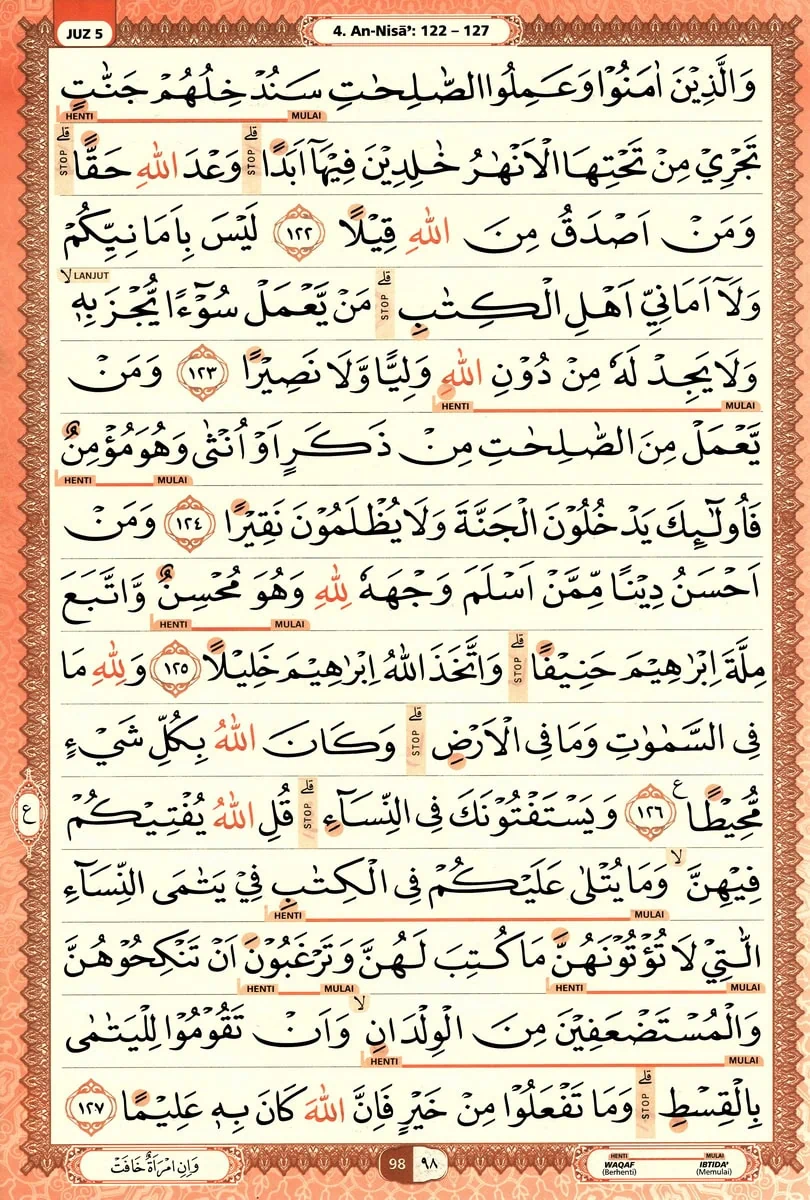 JUZ 5
4. An-Nisā': 122 – 127
وَالَّذِيْنَ اٰمَنُوْا وَعَمِلُوا الصّٰلِحٰتِ سَنُدْخِلُهُمْ جَنّٰتٍ
HENTI MULAI
تَجْرِيْ مِنْ تَحْتِهَا الْاَنْهٰرُ خٰلِدِيْنَ فِيْهَآ اَبَدًاۗ وَعْدَ اللّٰهِ حَقًّاۗ
STOP STOP
وَمَنْ اَصْدَقُ مِنَ اللّٰهِ قِيْلًا ١٢٢ لَيْسَ بِاَمَانِيِّكُمْ
وَلَآ اَمَانِيِّ اَهْلِ الْكِتٰبِۗ مَنْ يَّعْمَلْ سُوْۤءًا يُّجْزَ بِهٖۙ
STOP LANJUT
وَلَا يَجِدْ لَهٗ مِنْ دُوْنِ اللّٰهِ وَلِيًّا وَّلَا نَصِيْرًا ١٢٣ وَمَنْ
HENTI MULAI
يَّعْمَلْ مِنَ الصّٰلِحٰتِ مِنْ ذَكَرٍ اَوْ اُنْثٰى وَهُوَ مُؤْمِنٌ
HENTI MULAI
فَاُولٰۤىِٕكَ يَدْخُلُوْنَ الْجَنَّةَ وَلَا يُظْلَمُوْنَ نَقِيْرًا ١٢٤ وَمَنْ
اَحْسَنُ دِيْنًا مِّمَّنْ اَسْلَمَ وَجْهَهٗ لِلّٰهِ وَهُوَ مُحْسِنٌ وَّاتَّبَعَ
HENTI MULAI
مِلَّةَ اِبْرٰهِيْمَ حَنِيْفًاۗ وَاتَّخَذَ اللّٰهُ اِبْرٰهِيْمَ خَلِيْلًا ١٢٥ وَلِلّٰهِ مَا
STOP
فِى السَّمٰوٰتِ وَمَا فِى الْاَرْضِۗ وَكَانَ اللّٰهُ بِكُلِّ شَيْءٍ
STOP
مُّحِيْطًا ࣖ ١٢٦ وَيَسْتَفْتُوْنَكَ فِى النِّسَاۤءِۗ قُلِ اللّٰهُ يُفْتِيْكُمْ
STOP
ع
فِيْهِنَّۙ وَمَا يُتْلٰى عَلَيْكُمْ فِى الْكِتٰبِ فِيْ يَتٰمَى النِّسَاۤءِ
HENTI MULAI
الّٰتِيْ لَا تُؤْتُوْنَهُنَّ مَا كُتِبَ لَهُنَّ وَتَرْغَبُوْنَ اَنْ تَنْكِحُوْهُنَّ
HENTI MULAI HENTI MULAI
وَالْمُسْتَضْعَفِيْنَ مِنَ الْوِلْدَانِۙ وَاَنْ تَقُوْمُوْا لِلْيَتٰمٰى
HENTI MULAI
بِالْقِسْطِۗ وَمَا تَفْعَلُوْا مِنْ خَيْرٍ فَاِنَّ اللّٰهَ كَانَ بِهٖ عَلِيْمًا ١٢٧
STOP
وَاِنِ امْرَاَةٌ خَافَتْ
98 ٩٨
HENTI MULAI
WAQAF IBTIDA'
(Berhenti) (Memulai)